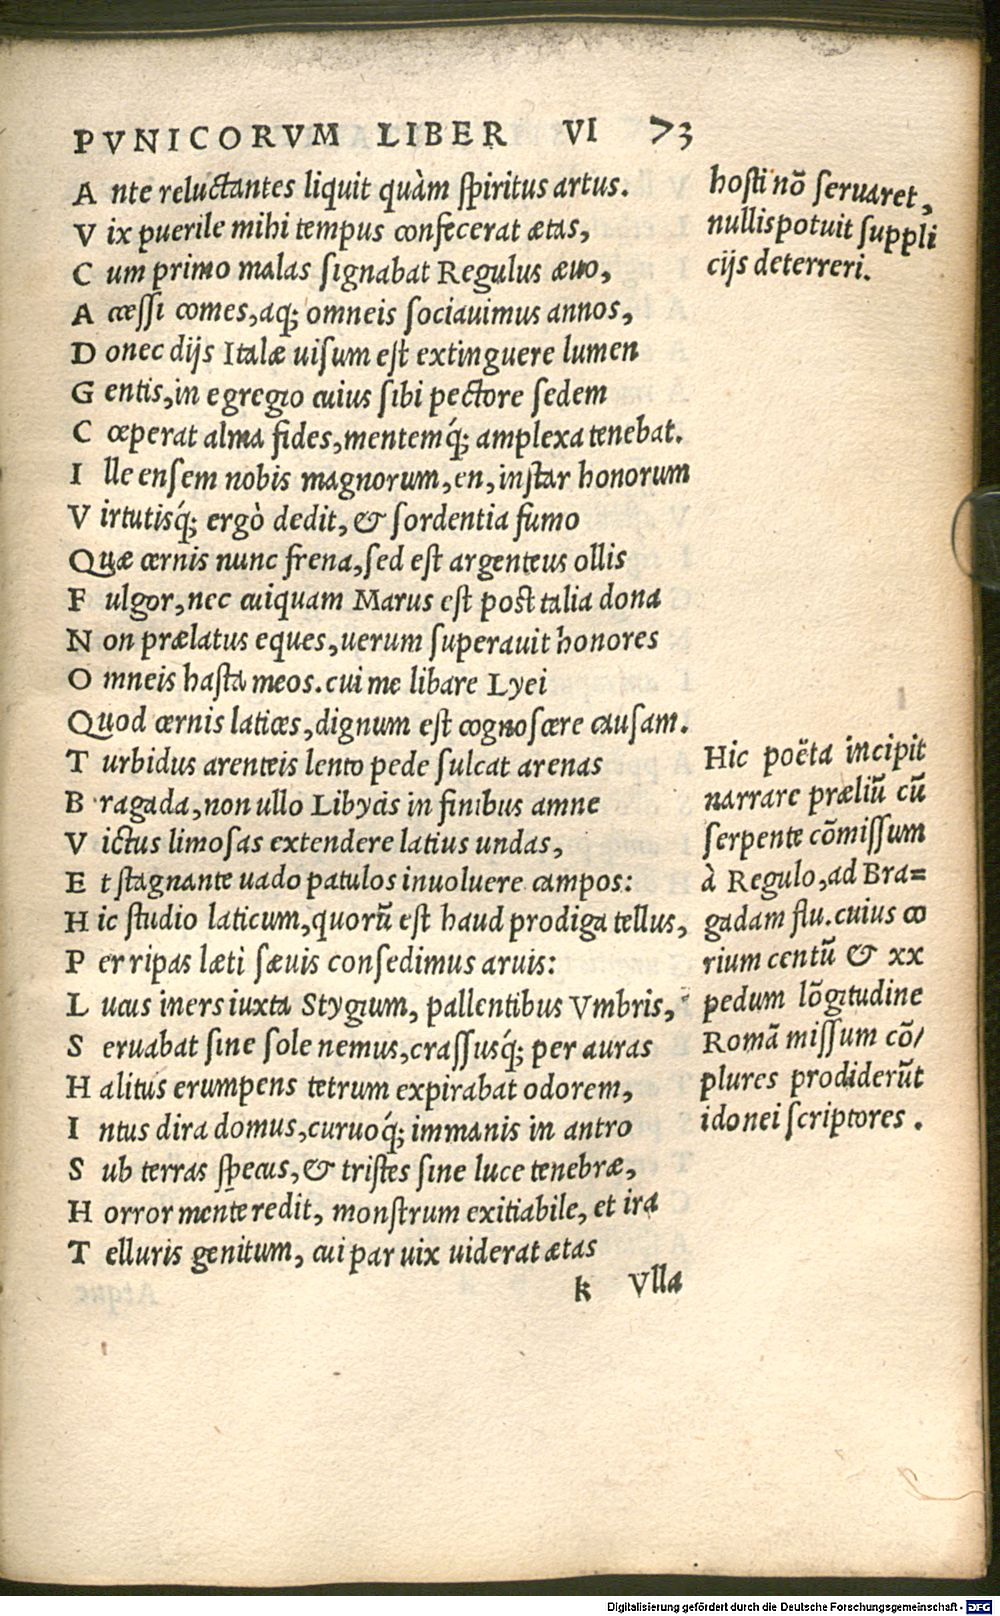 PVNICORVM LIBER VI 73
Ante reluctantes liquit quàm spiritus artus.
Vix puerile mihi tempus confecerat ætas,
Cum primo malas signabat Regulus æuo,
Accessi comes, atq; omneis sociauimus annos,
Donec dijs Italæ uisum est extinguere lumen
Gentis, in egregio cuius sibi pectore sedem
Cœperat alma fides, mentemq́; amplexa tenebat.
Ille ensem nobis magnorum, en, instar honorum
Virtutisq́; ergò dedit, & sordentia fumo
Quæ cernis nunc frena, sed est argenteus ollis
Fulgor, nec cuiquam Marus est post talia dona
Non prælatus eques, uerum superauit honores
Omneis hasta meos. cui me libare Lyei
Quod cernis latices, dignum est cognoscere causam.
Turbidus arenteis lento pede sulcat arenas
Bragada, non ullo Libycis in finibus amne
Victus limosas extendere latius undas,
Et stagnante uado patulos inuoluere campos:
Hic studio laticum, quorū est haud prodiga tellus,
Per ripas læti sæuis consedimus aruis:
Lucus iners iuxta Stygium, pallentibus Vmbris,
Seruabat sine sole nemus, crassusq́; per auras
Halitus erumpens tetrum expirabat odorem,
Intus dira domus, curuoq́; immanis in antro
Sub terras specus, & tristes sine luce tenebræ,
Horror mente redit, monstrum exitiabile, et ira
Telluris genitum, cui par uix uiderat ætas
k Vlla
hosti nō seruaret,
nullis potuit suppli
cijs deterreri.
Hic poëta incipit
narrare præliū cū
serpente cōmissum
à Regulo, ad Bra=
gadam flu. cuius co
rium centū & xx
pedum lōgitudine
Romā missum cō/
plures prodiderūt
idonei scriptores.
Digitalisierung gefördert durch die Deutsche Forschungsgemeinschaft - DFG